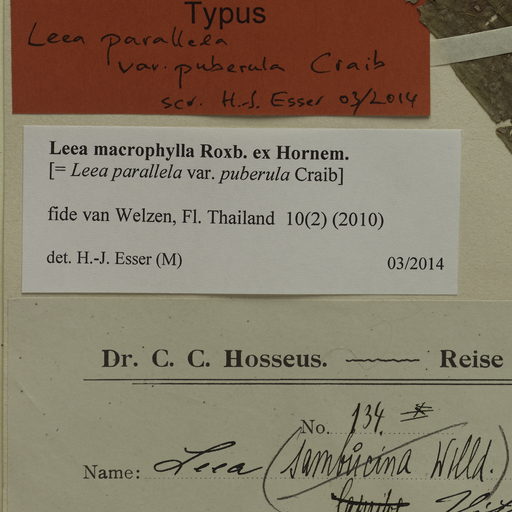 Typus
Leea parallela
var. puberula Craib
scr. H.-J. Esser 03/2014
Leea macrophylla Roxb. ex Hornem.
[= Leea parallela var. puberula Craib]
fide van Welzen, Fl. Thailand 10(2) (2010)
det. H.-J. Esser (M) 03/2014
Dr. C. C. Hosseus. Reise
No. 134.
Name: Leea (sambucina Willd.)